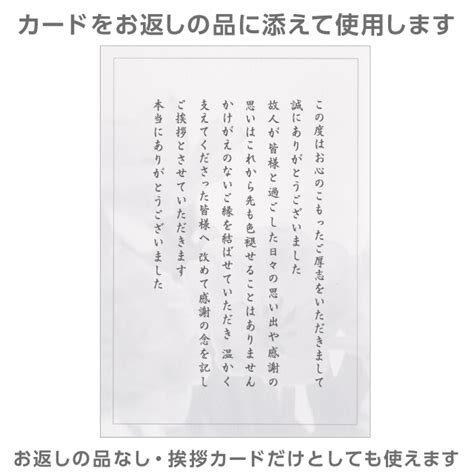 カードをお返しの品に添えて使用します
この度はお心のこもったご厚志をいただきまして
誠にありがとうございました
故人が皆様と過ごした日々の思い出や感謝の
思いはこれから先も色褪せることはありません
かけがえのないご縁を結ばせていただき 温かく
支えてくださった皆様へ 改めて感謝の念を記し
ご挨拶とさせていただきます
本当にありがとうございました
お返しの品なし・挨拶カードだけとしても使えます